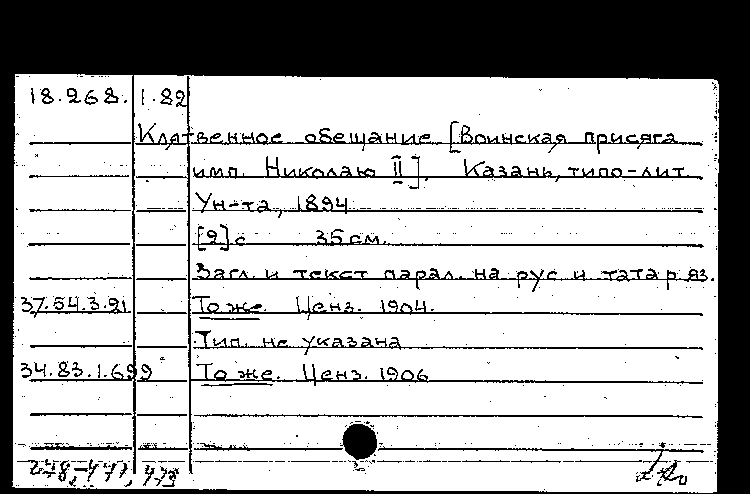 18.268. 1.82
Клятвенное обещание [Воинская присяга
имп. Николаю II]. Казань, типо-лит.
Ун-та, 1894
[2] с 35 см.
Загл. и текст парал. на рус и татар яз.
37.54.3.21 То же. Ценз. 1904.
Тип. не указана
34.83.1.699 То же. Ценз. 1906